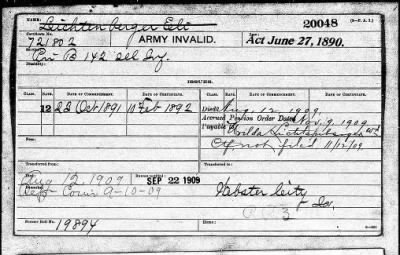 NAME: Lichtenberger Eli 20048 (3—P. A. I.)
Certificate No. ARMY INVALID. Law:
721802 Act June 27, 1890.
Pvt B 142 Ill Inf.
Disability:
ISSUES.
CLASS. RATE. DATE OF COMMENCEMENT. DATE OF CERTIFICATE. CLASS. RATE. DATE OF COMMENCEMENT. DATE OF CERTIFICATE.
12 22 Oct 1891 11 Feb 1892 Died Aug. 12, 1909
Accrued Pension Order Dated Nov. 9, 1909
Payable to Lichtenberger wd
Ctf not filed 11/12/09
Transferred from Transferred to
Aug 12, 1909 SEP 22 1909
9-10-09 Webster City
Ia.
Former Roll No. 19894 Home: